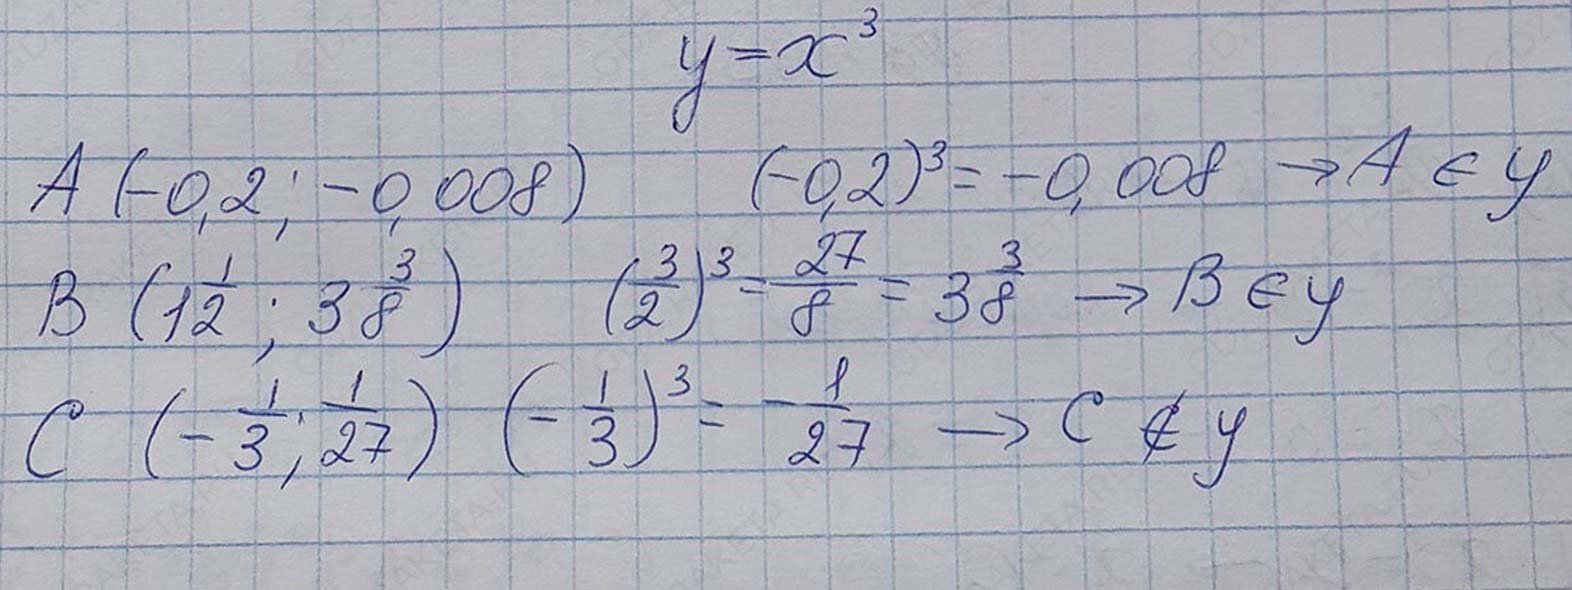 y = x³
A (-0,2 ; -0,008) (-0,2)³ = -0,008 → A ∈ y
B (1 1/2 ; 3 3/8) (3/2)³ = 27/8 = 3 3/8 → B ∈ y
C (- 1/3 ; 1/27) (- 1/3)³ = - 1/27 → C ∉ y